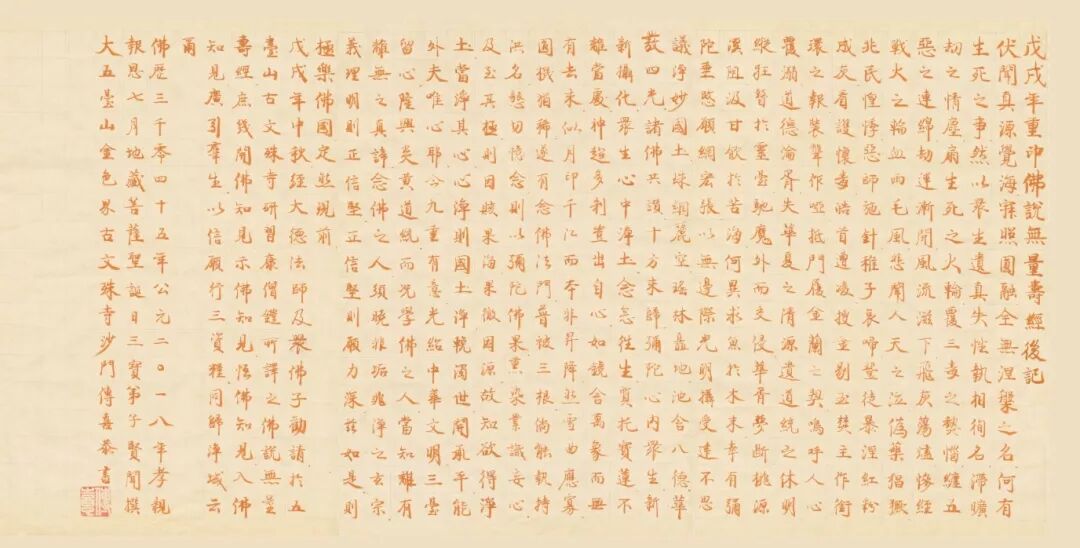 戊戌年重印佛說無量壽經後記
伏聞真源覺海寂照圓融全無涅槃之名何有
生死之事然以眾生遺真失性執相徇名滯曠
劫之情塵扇生死之火輪覆三毒之熱惱纏五
惡之連綿劫運漸開風流滋下飛灰蕩燼慘經
戰火之輪血雨毛風悲聞人天之泣偽槳猖獗
兆民惶悸惡師施針稚子哀啼楚徒暴涅紅粉
成灰看護懷毒皓首遭凌搜查剔至槳主作銜
環之報裝聾作啞抵門履金蘭之契嗚呼人心
覆溺道德淪胥失華夏之清源遺道統之休明
縱狂瞽於靈臺馳魔外而交侵華胥夢斷桃源
溪阻汲甘飲於苦海何異求魚於木末幸有彌
陀垂愍願網宏張以無邊際光明攝受達不思
議淨妙國土珠網麗空瑤林矗地池含八德華
發四光諸佛共讚十方來歸彌陀心內眾生新
新攝化眾生心中淨土念念往生質托寶蓮不
離當處神超多剎豈出自心如鏡含萬象而無
有去來似月印千江而本非昇降然雪曲應寡
圓機猶稀遂有念佛法門普被三根倘能執持
洪名懇切憶念則以彌陀佛果熏染業識妄心
及至其極則因賅果海果徹因源故知欲得淨
土當淨其心心淨則國土淨輓濁世開承平能
外夫唯心耶今九重有意光紹中華文明三臺
留心隆興炎黃道統而況學佛之人當知離有
離無之真諦念佛之人須曉非垢非淨之玄宗
義理明則正信堅正信堅則願力深茲如是則
極樂佛國定然現前
戊戌年中秋經大德法師及眾佛子勸請於五
臺山古文殊寺研習康僧鎧所譯之佛說無量
壽經庶幾開佛知見示佛知見悟佛知見入佛
知見廣引羣生以信願行三資糧同歸淨域云
爾
佛歷三千零四十五年公元二〇一八年孝親
報恩七月地藏菩薩聖誕日三寶弟子賢聞撰
大五臺山金色界古文殊寺沙門傳喜恭書